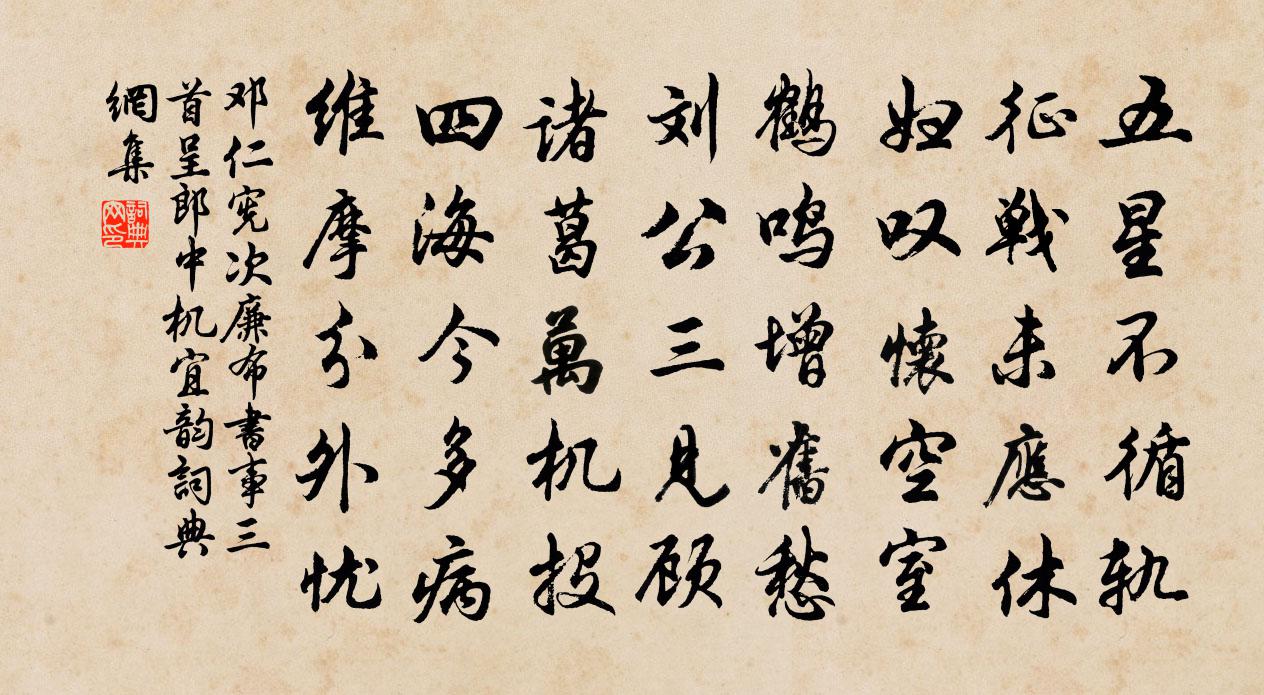 五星不循轨
征戦未應休
妇叹懷空室
鹤鸣增舊愁
刘公三见顾
诸葛萬机投
四海今多病
维摩分外忧
邓仁宪次廉布書事三
首呈郎中机宜韵詞典
網集
詞典網印